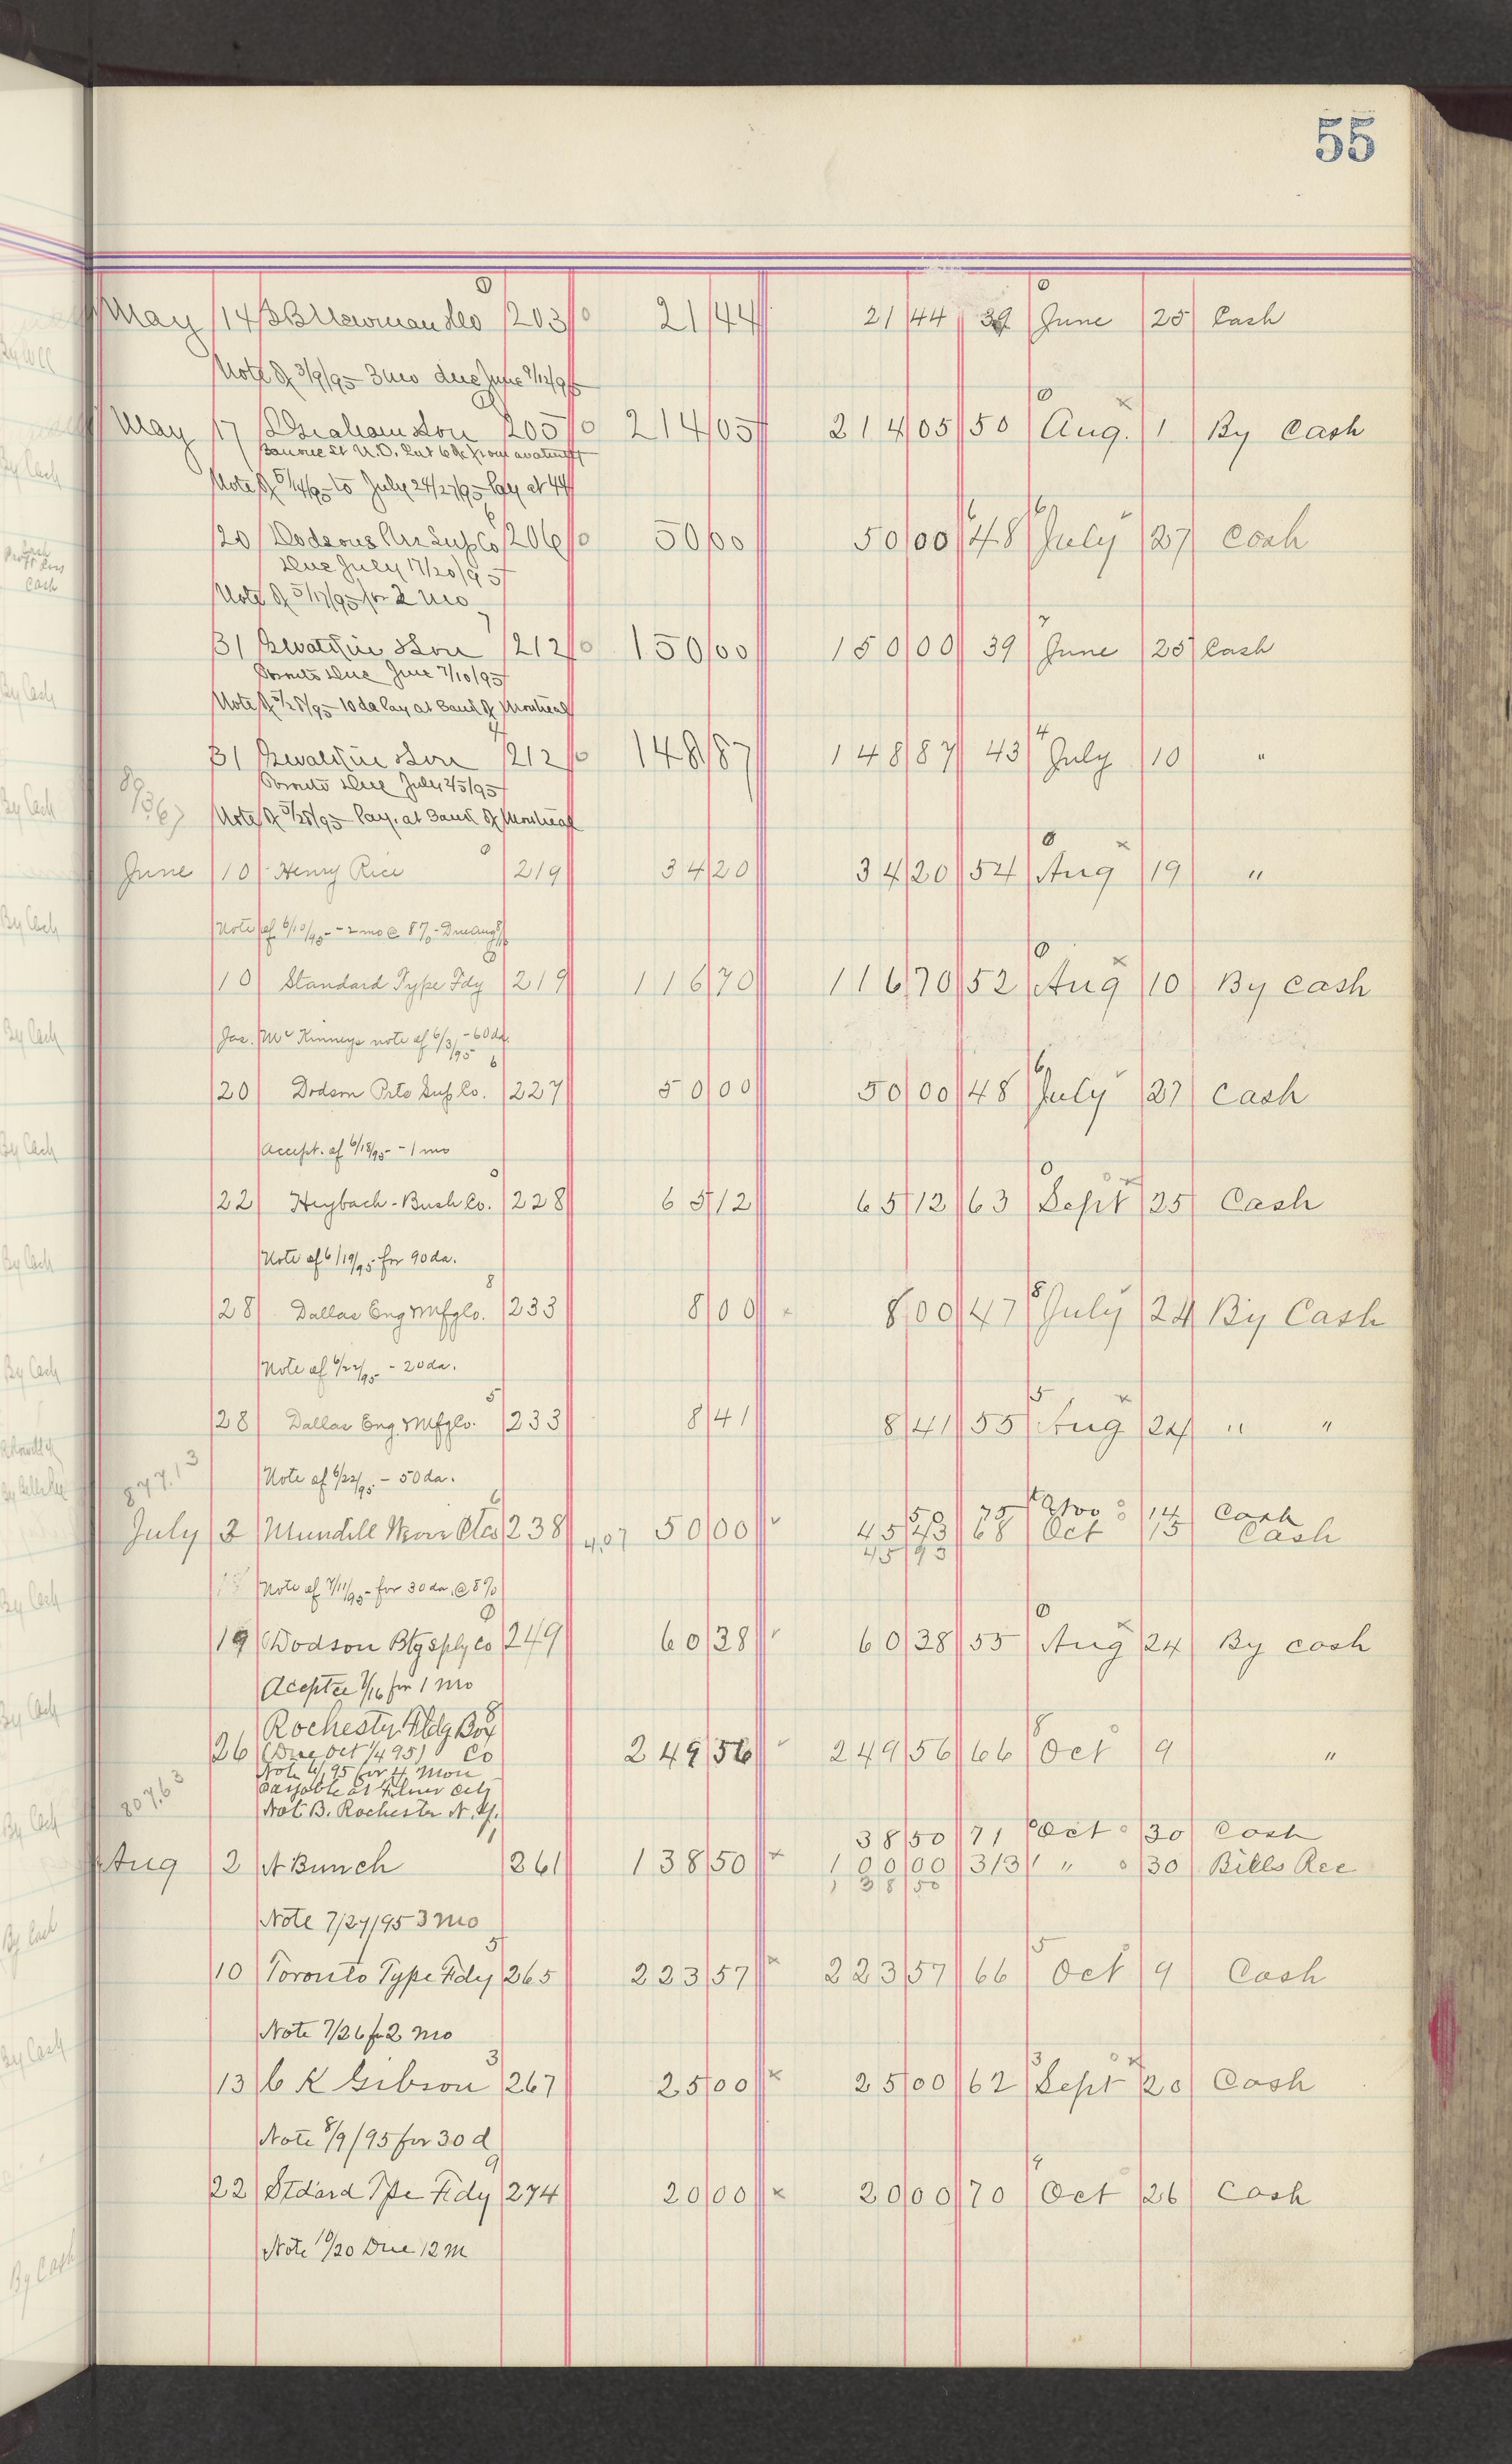 55
May 14 203 0 21 44 21 44 39 June 25 Cash
Note of 3/9/95 - 3 mo due June 9/12/95
May 17 Graham & Son 205 0 214 05 214 05 50 Aug. 1 By Cash
Note of 5/14/95 to July 24/27/95 Pay at 44
20 Dodsons Ptr Sup Co 206 0 50 00 50 00 48 July 27 Cash
Due July 17/20/95
Note of 5/17/95 for 2 mo
31 & Son 212 0 150 00 150 00 39 June 25 Cash
Toronto Due June 7/10/95
Note of 5/28/95 - 10 da Pay at Bank of Montreal
31 & Son 212 0 148 87 148 87 43 July 10 "
Toronto Due July 2/5/95
Note of 5/28/95 Pay. at Bank of Montreal
June 10 Henry Rice 219 34 20 34 20 54 Aug 19 "
Note of 6/10/95 - 2 mo @ 8% - Due Aug
10 Standard Type Fdy 219 116 70 116 70 52 Aug 10 By Cash
Jas. McKinneys note of 6/3/95 - 60 da.
20 Dodson Prts Sup Co. 227 50 00 50 00 48 July 27 Cash
Accept. of 6/18/95 - 1 mo
22 Heybach-Bush Co. 228 65 12 65 12 63 Sept 25 Cash
Note of 6/19/95 for 90 da.
28 Dallas Eng & Mfg Co. 233 8 00 8 00 47 July 24 By Cash
Note of 6/22/95 - 20 da.
28 Dallas Eng & Mfg Co. 233 8 41 8 41 55 Aug 24 " "
877.13
Note of 6/22/95 - 50 da.
50 75 Nov 14 Cash
July 2 Mundell 238 4.07 50 00 45 43 68 Oct 15 Cash
45 93
Note of 7/11/95 - for 30 da. @ 8%
19 Dodson Ptg Sply Co 249 60 38 60 38 55 Aug 24 By Cash
Aceptce 7/16 for 1 mo
Rochester Fldg Box
26 (Due Oct 1/4 95) Co 249 56 249 56 66 Oct 9 "
Note 6/1 95 for 4 Mon
807.63
payable at Flour City
Nat B. Rochester N.Y.
38 50 71 Oct 30 Cash
Aug 2 A Bunch 261 138 50 100 00 313 " 30 Bills Rec
138 50
Note 7/27/95 3 mo
10 Toronto Type Fdy 265 223 57 223 57 66 Oct 9 Cash
Note 7/26 for 2 mo
13 C K Gibson 267 25 00 25 00 62 Sept 20 Cash
Note 8/9/95 for 30 d
22 Stdard Tpe Fdy 274 20 00 20 00 70 Oct 26 Cash
Note 10/20 Due 12 M